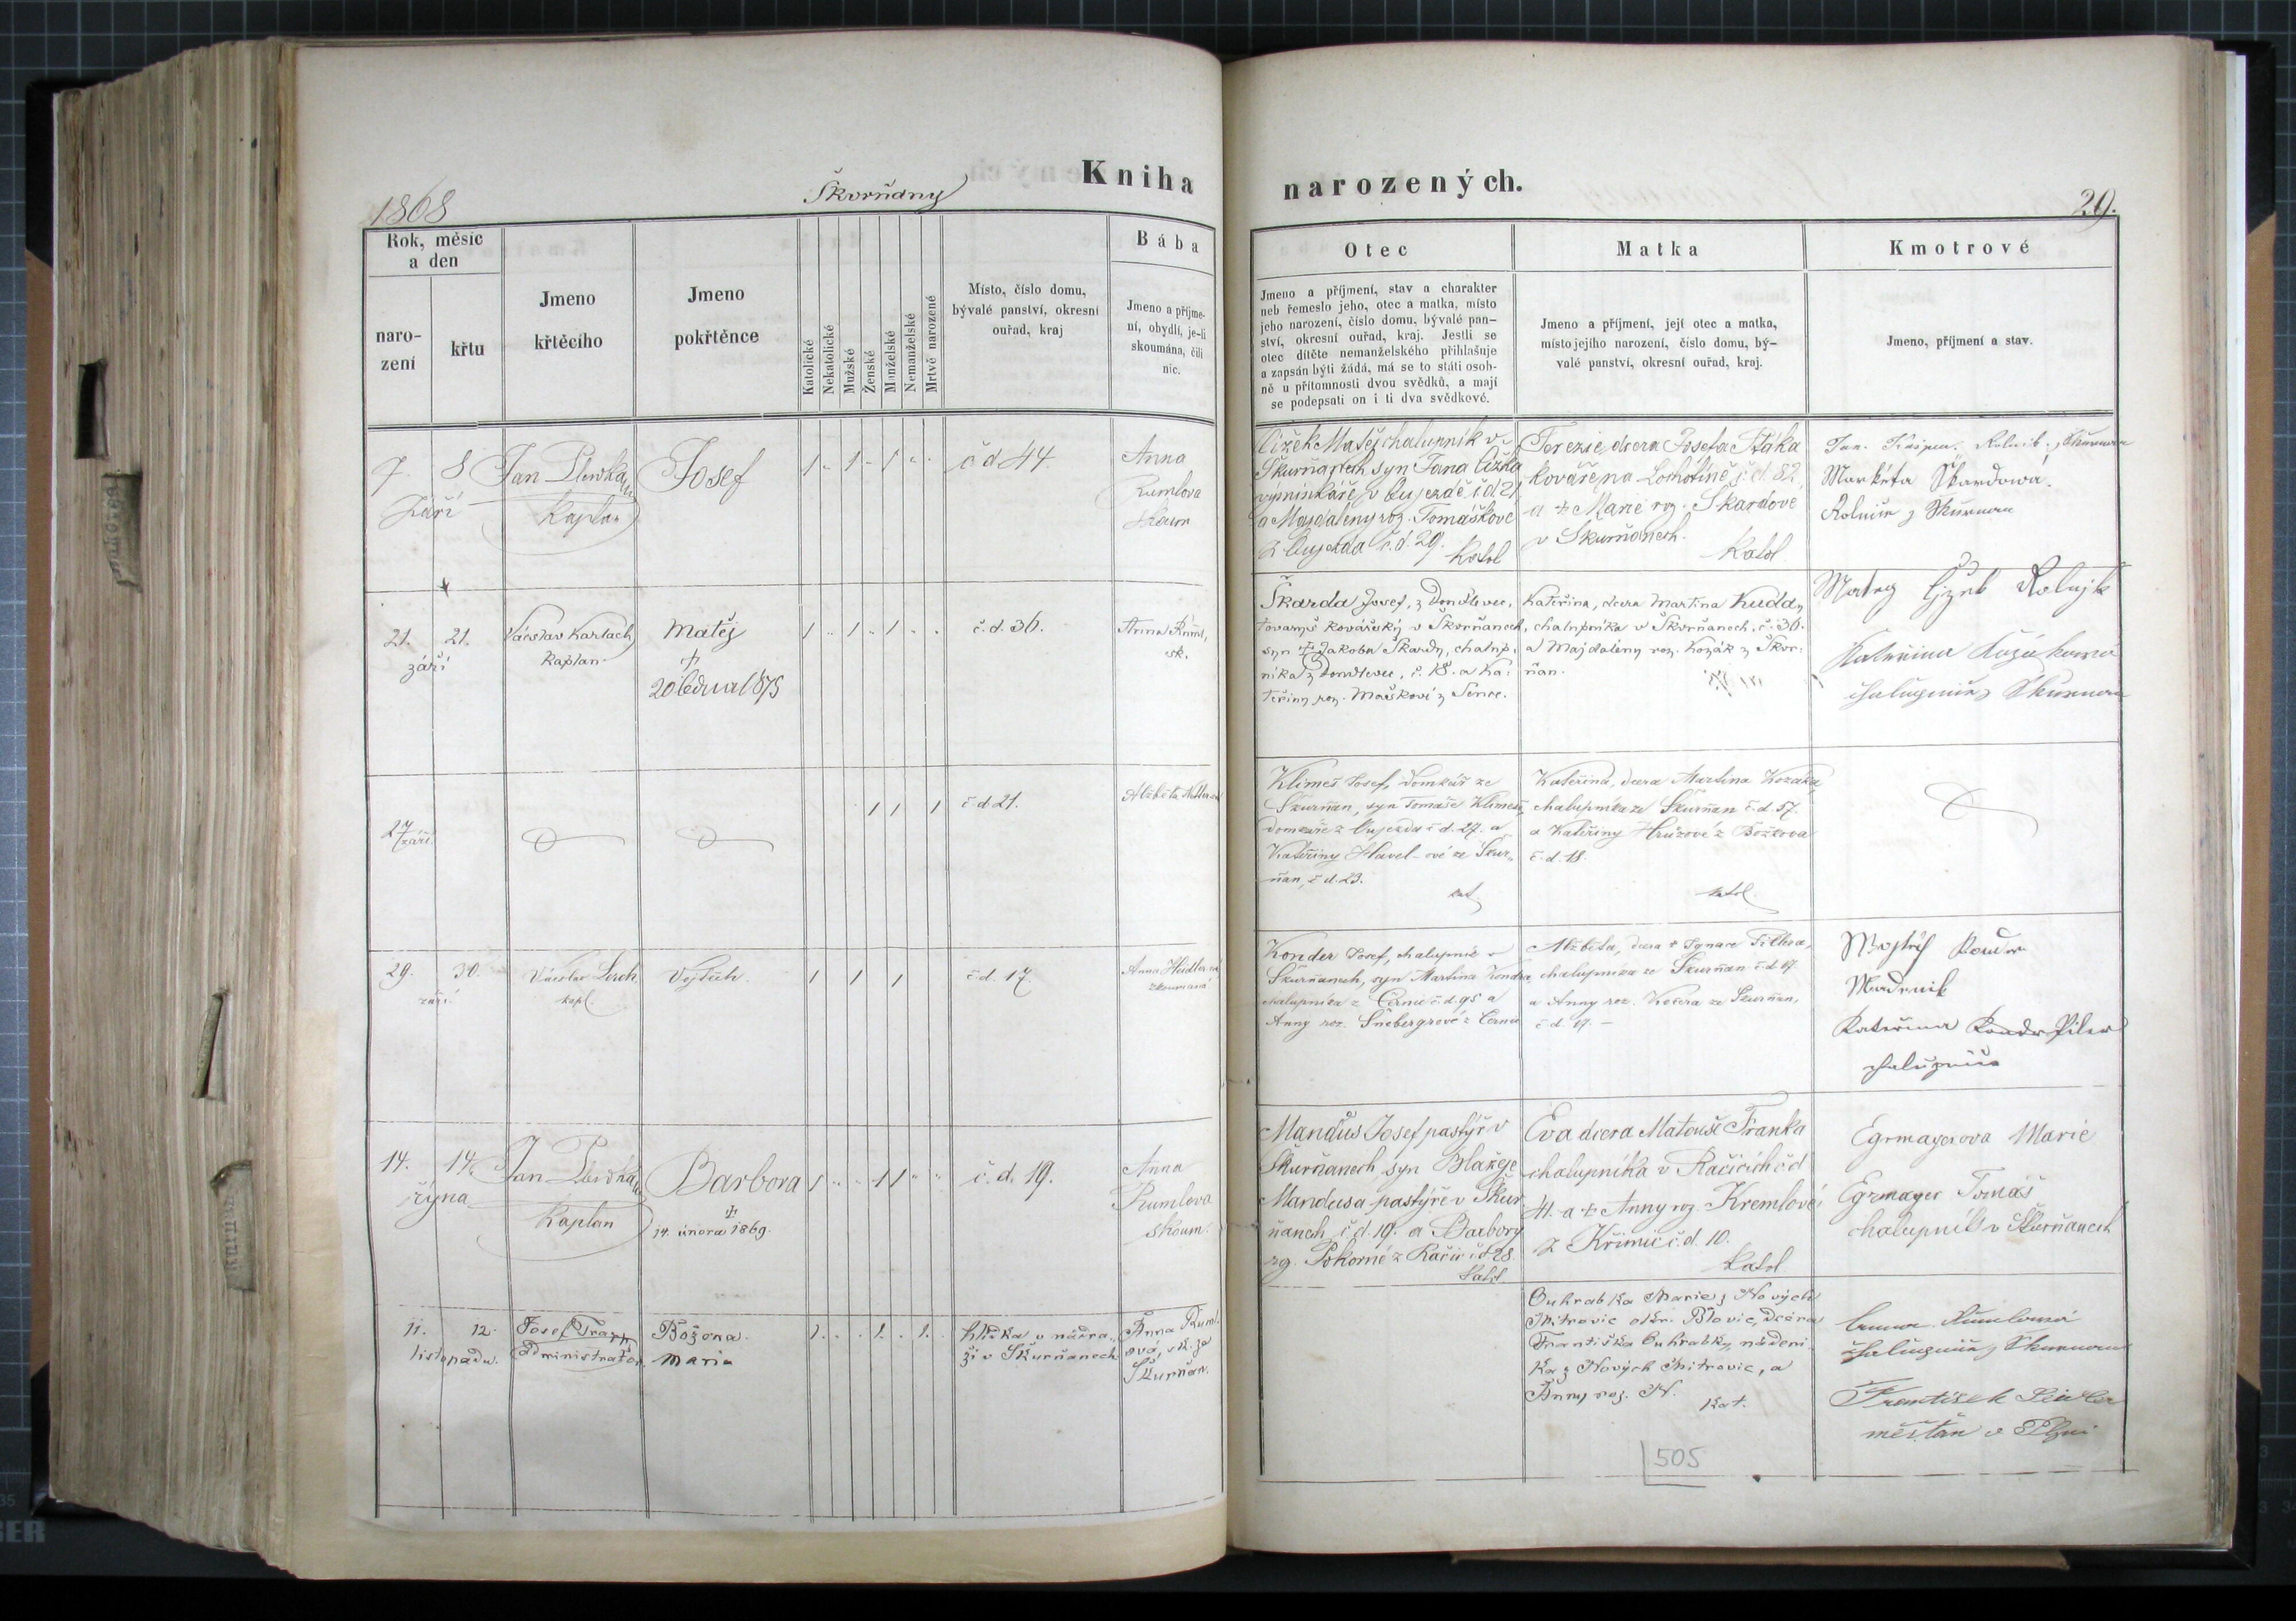 1868
Škvorňany
Kniha
Rok, měsíc
a den
naro-
zení
křtu
Jmeno
křtěcího
Jmeno
pokřtěnce
Katolické
Nekatolické
Mužské
Ženské
Manželské
Nemanželské
Mrtvě narozené
Místo, číslo domu,
bývalé panství, okresní
ouřad, kraj
Bába
Jmeno a příjme-
ní, obydlí, je-li
skoumána, čili
nic.
7. 8 Jan Josef 1 1 1 č d 44. Anna
Září Kaplan Rumlova
skoum
21. 21. Václav Karlach Matěj 1 1 1 č. d. 36. Anna
září Kaplan † sk.
20 ledna 1875
27 1 1 1 č. d 21. Alžběta
září
29. 30. Václav Lerch Vojtěch. 1 1 1 č. d. 17. Anna
září kapl. zkoumaná
14. 14. Jan Barbora 1 1 1 č. d. 19. Anna
října Kaplan † Rumlova
14. února 1869. skoum.
11. 12. Josef Božena 1. 1. 1. u nádra- Anna Ruml-
listopadu. Administrator Maria ží v Škurňanech ová, sk. ze
Škurňan.
narozených.
29.
Otec
Jmeno a příjmení, stav a charakter
neb řemeslo jeho, otec a matka, místo
jeho narození, číslo domu, bývalé pan-
ství, okresní ouřad, kraj. Jestli se
otec dítěte nemanželského přihlašuje
a zapsán býti žádá, má se to státi osob-
ně u přítomnosti dvou svědků, a mají
se podepsati on i ti dva svědkové.
Matka
Jmeno a příjmení, její otec a matka,
místo jejího narození, číslo domu, bý-
valé panství, okresní ouřad, kraj.
Kmotrové
Jmeno, příjmení a stav.
Čížek Matěj chalupník v
Škurňanech syn Jana Čížka
vyminkáře v Oujezdě č d. 21
a Magdaleny roz. Tomáškove
z Oujezda č. d. 29. Katol
Terezie dcera Josefa Ptáka
kováře na Lochotíně č. d. 82
a † Marie roz. Škardove
v Škurňanech.
Katol
Jan Rolník z Škurnan
Markéta Škardowá
Rolnice z Škurnan
Škarda Josef, z Doudlevec,
tovaryš kovářský v Škvorňanech,
syn † Jakoba Škardy, chalup-
níka z Doudlevec, č. 18. a Ka-
teřiny roz. Maškové z Senec.
Kateřina, dcera Martina Kuddy
chalupníka v Škvorňanech, č. 36.
a Majdaleny roz. Kozák z Škvor-
ňan.
Kateřina
chalupnice z Škurnan
Klimeš Josef, domkář ze
Škurňan, syn Tomáše Klimeše,
domkáře z Oujezda č. d. 27. a
Kateřiny Havel-ové ze Škur-
ňan, č. d. 23.
kat
Kateřina, dcera Martina Kozáka
chalupníka ze Škurňan č. d. 57.
a Kateřiny Hrůzové z Božkova
č. d. 18.
katol.
Konder Josef, chalupník v
Škurňanech, syn Martina Kondra,
chalupníka z č. d. 95 a
Anny roz. Šnebergrové z
Alžběta, dcera † Ignace
chalupníka ze Škurňan č. d. 17.
a Anny roz. ze Škurňan,
č. d. 17. –
Kateřina
chalupnice
Manďus Josef pastýř v
Škurňanech syn Blažeje
Mandusa pastýře v Škur
ňanech č. d. 19. a Barbory
rz. Pokorné z Račic č d 28.
Katol
Eva dcera Matouše Franka
chalupníka v Račicích č d
41. a † Anny roz. Kremlové
z Křimic č. d. 10.
Katol
Egrmayerova Marie
Egrmayer Tomáš
chalupník v Škurňanech
Ouhrabka Marie z Nových
Mitrovic okr. Blovic, dcera
Františka Ouhrabky, nádeni-
ka z Nových Mitrovic, a
Anny roz. N.
Kat.
Anna Rumlowá
chalupnice z Škurnan
František
měšťan v Plzni
505